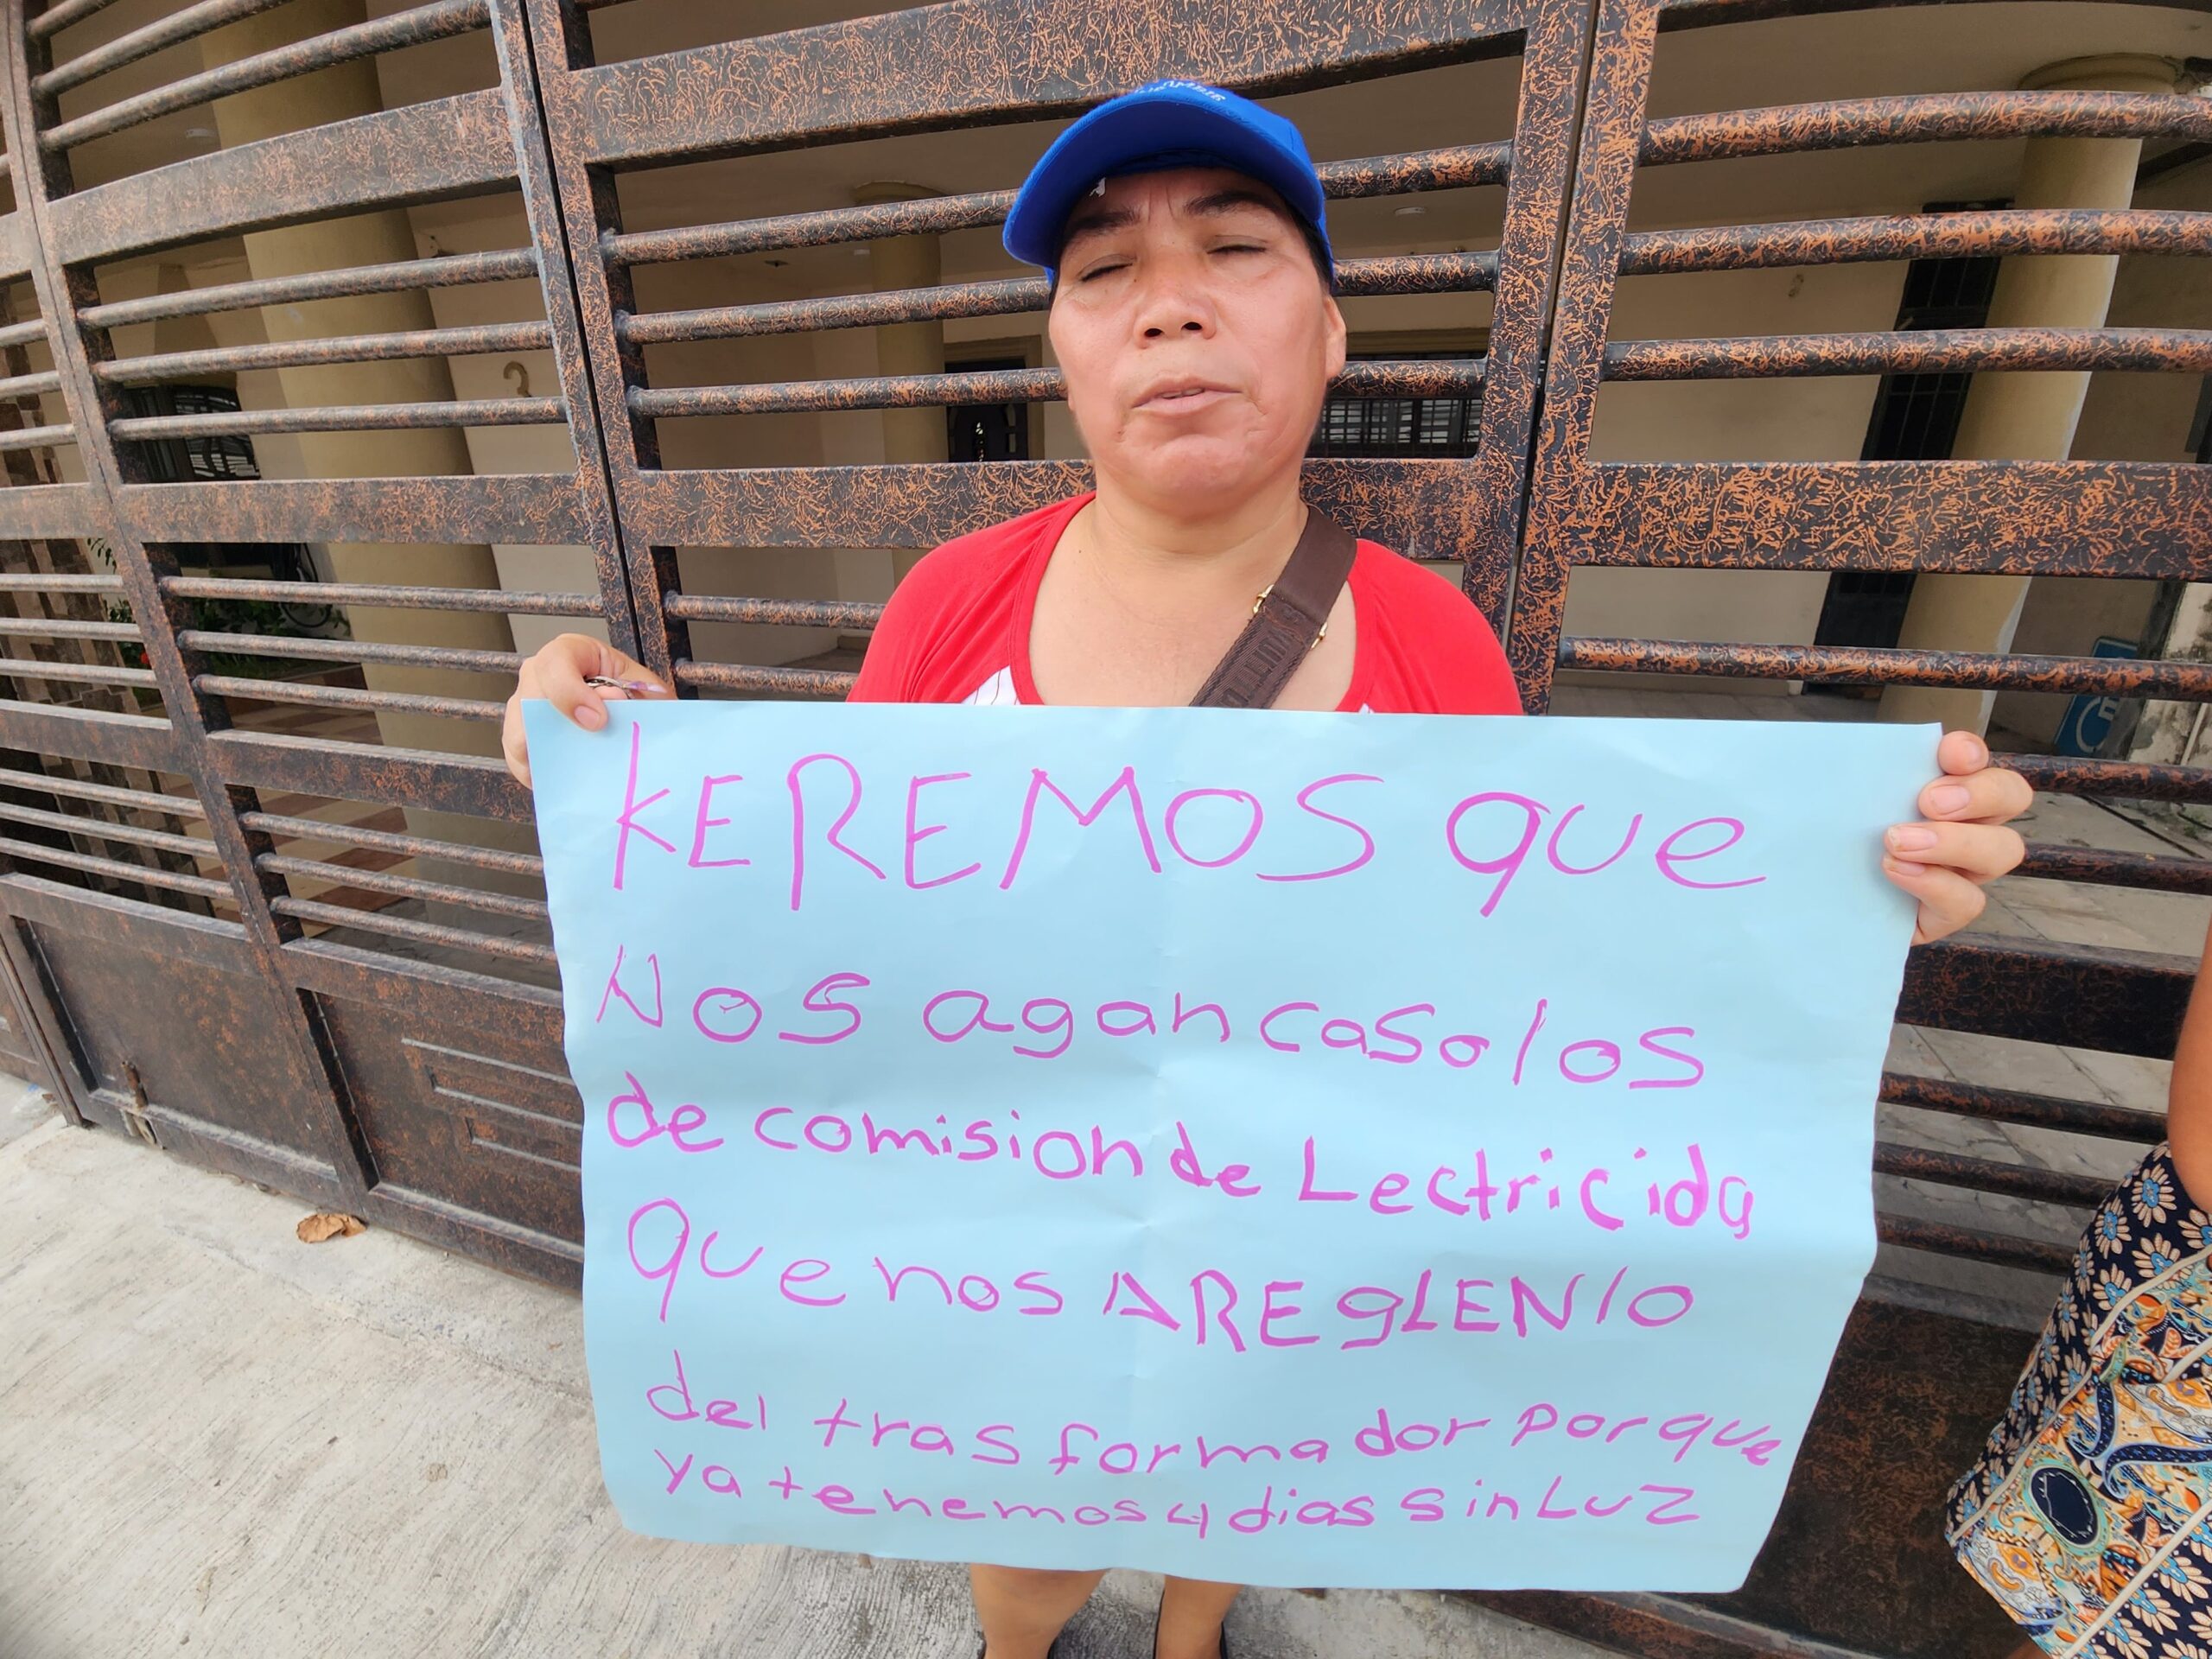 KEREMOS que
NOS agan caso los
de comision de Lectricida
que nos AREgLEN lo
del trasformador porque
ya tenemos 4 dias sin Luz